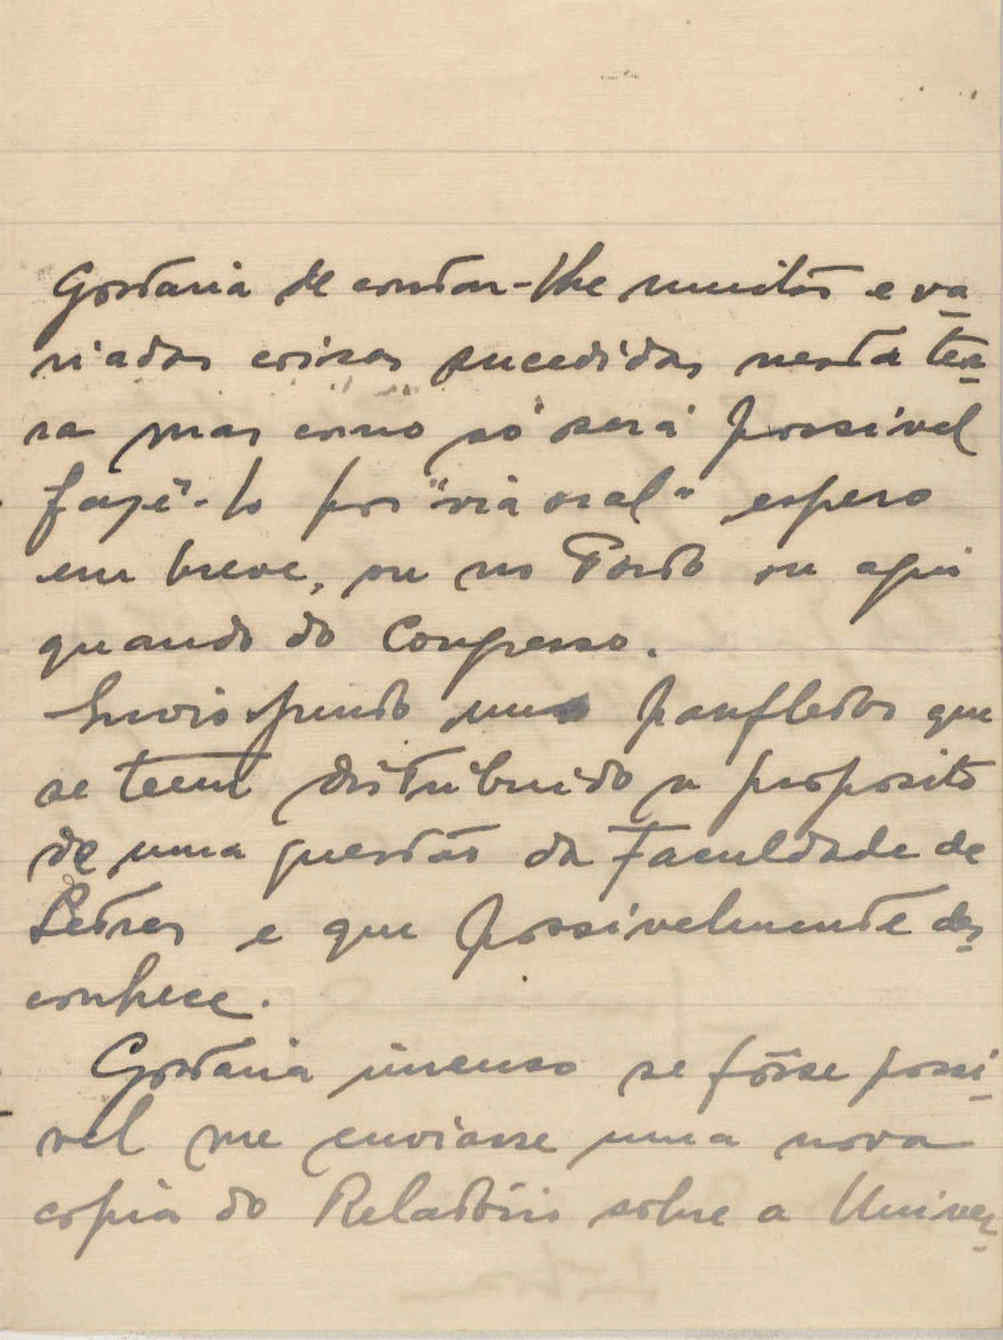 Gostaria de contar-lhe muitas e va-
riadas coisas sucedidas nesta ter-
ra mas como só será possivel
fazê-lo por "via oral" espero
em breve, ou no Porto ou aqui
quando do Congresso.
Envio junto uns panfletos que
se teem distribuido a proposito
de uma questão da Faculdade de
Letras e que possivelmente des-
conhece.
Gostaria imenso se fôsse possi-
vel me enviasse uma nova
copia do Relatório sobre a Univer-